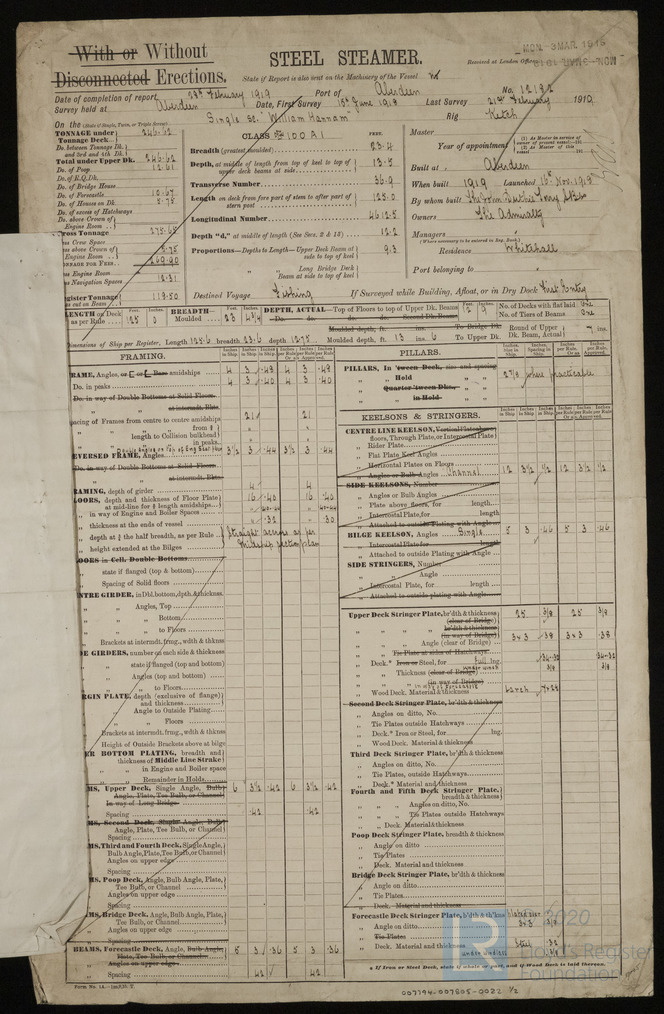 With or Without
Disconnected Erections.
STEEL STEAMER.
State if Report is also sent on the Machinery of the Vessel
Received at London Office
MON. 3 MAR. 1919
Date of completion of report 28th February 1919 Port of Aberdeen No. 12182
Survey held at Aberdeen Date, First Survey 15th June 1918 Last Survey 21st February 1919
On the Single Sc. "William Hannam" Rig Ketch
TONNAGE under Tonnage Deck 246.62
Do. between Tonnage Dk. and 3rd and 4th Dk.
Total under Upper Dk. 246.62
Do. of Poop 12.61
Do. of R.Q.Dk.
Do. of Bridge House
Do. of Forecastle 10.67
Do. of Houses on Dk. 5.75
Do. of excess of Hatchways
Do. above Crown of Engine Room
Gross Tonnage 275.65
Crew Space
above Crown of Engine Room 5.75
TONNAGE FOR FEES 269.90
Engine Room
Navigation Spaces 12.31
Register Tonnage 119.50
as cut on Beam
CLASS 100A1
Breadth (greatest moulded) 23.4
Depth, at middle of length from top of keel to top of upper deck beams at side 13.5
Transverse Number 36.9
Length on deck from fore part of stem to after part of stern post 125.0
Longitudinal Number 4612.5
Depth "d," at middle of length (See Secs. 2 & 13) 12.2
Proportions—Depths to Length—Upper Deck Beam at side to top of keel 9.3
Long Bridge Deck Beam at side to top of keel
Destined Voyage Fishing If Surveyed while Building, Afloat, or in Dry Dock First Entry
Master
Year of appointment
(1) As Master in service of owner of present vessel
(2) As Master of this vessel
Built at Aberdeen
When built 1919 Launched 16 Nov. 1918
By whom built
Owners The Admiralty
Managers
(Where necessary to be entered in Reg. Book)
Residence Whitehall
Port belonging to
LENGTH on Deck as per Rule 125 0
BREADTH— Moulded 23 4¾
DEPTH, ACTUAL—Top of Floors to top of Upper Dk. Beams 12 9
Do. do. do. Second Dk. Beams
No. of Decks with flat laid One
No. of Tiers of Beams One
Dimensions of Ship per Register, length 125.6 breadth 23.6 depth 12.75
Moulded depth, ft. ins. To Bridge Dk.
Moulded depth, ft. 13 ins. 6 To Upper Dk.
Round of Upper Dk. Beam, Actual 7 ins.
FRAMING.
FRAME, Angles, or E or L Bars amidships 4 3 .48 4 3 .48
Do. in peaks 4 3 .40 4 3 .40
Do. in way of Double Bottoms at Solid Floors
at intermdt. Bkts.
Spacing of Frames from centre to centre amidships 21 21
from
length to Collision bulkhead
in peaks
REVERSED FRAME, Angles 3½ 3 .44 3½ 3 .44
Do. in way of Double Bottoms at Solid Floors
at intermdt. Bkts.
FRAMING, depth of girder 4 4
FLOORS, depth and thickness of Floor Plate at mid-line for ½ length amidships 16 .40 16 .40
in way of Engine and Boiler Spaces
thickness at the ends of vessel .32 .30
depth at ¾ the half breadth, as per Rule Straight across as per
height extended at the Bilges Midship section plan
FLOORS in Cell. Double Bottoms
state if flanged (top & bottom)
Spacing of Solid floors
CENTRE GIRDER, in Dbl. bottom, dpth. & thickness
Angles, Top
Bottom
to Floors
Brackets at intermdt. frmg., wdth & thkness
SIDE GIRDERS, number on each side & thickness
state if flanged (top and bottom)
Angles (top and bottom)
to Floors
MARGIN PLATE, depth (exclusive of flange) and thickness
Angle to Outside Plating
Floors
Brackets at intermdt. frmg., wdth & thkness
Height of Outside Brackets above at bilge
INNER BOTTOM PLATING, breadth and thickness of Middle Line Strake
in Engine and Boiler space
Remainder in Holds
BEAMS, Upper Deck, Single Angle, Bulb Angle, Plate, Tee Bulb, or Channel 6 3½ .42 6 3½ .42
In way of Long Bridge
Spacing 42 42
BEAMS, Second Deck, Single Angle, Bulb Angle, Plate, Tee Bulb, or Channel
Spacing
BEAMS, Third and Fourth Deck, Single Angle, Bulb Angle, Plate, Tee Bulb, or Channel
Angles on upper edge
Spacing
BEAMS, Poop Deck, Angle, Bulb Angle, Plate, Tee Bulb, or Channel
Angles on upper edge
Spacing
BEAMS, Bridge Deck, Angle, Bulb Angle, Plate, Tee Bulb, or Channel
Angles on upper edge
Spacing
BEAMS, Forecastle Deck, Angle, Bulb Angle, Plate, Tee Bulb, or Channel 5 3 .36 5 3 .36
Angles on upper edge
Spacing 42 42
PILLARS.
PILLARS, In 'tween Deck, size and spacing 2⅞ where practicable
Hold
Quarter 'tween Dks.
in Hold
KEELSONS & STRINGERS.
CENTRE LINE KEELSON, Vertical plate above floors, Through Plate, or Intercostal Plate
Rider Plate
Flat Plate Keel Angles
Horizontal Plates on Floors
Angles or Bulb Angles Channel 12 3½ ½ 12 3½ ½
SIDE KEELSONS, Number
Angles or Bulb Angles
Plate above floors, for length
Intercostal Plate, for length
Attached to outside Plating with Angle
BILGE KEELSON, Angles Single 5 3 .46 5 3 .46
Intercostal Plate for length
Attached to outside Plating with Angle
SIDE STRINGERS, Number
Angle
Intercostal Plate, for length
Attached to outside plating with Angle
Upper Deck Stringer Plate, br'dth & thickness (clear of Bridge) 25 3/8 25 3/8
br'dth & thickness (in way of Bridge)
Angle (clear of Bridge) 3x3 .38 3x3 .38
Tie Plate at sides of Hatchways
Deck.* Iron or Steel, for full lng.
Thickness (clear of Bridge)
(in way of Bridge)
Wood Deck, Material & thickness Larch
Second Deck Stringer Plate, br'dth & thickness
Angles on ditto, No.
Tie Plates outside Hatchways
Deck.* Iron or Steel, for lng.
Wood Deck. Material & thickness
Third Deck Stringer Plate, br'dth & thickness
Angles on ditto, No.
Tie Plates, outside Hatchways
Deck.* Material and thickness
Fourth and Fifth Deck Stringer Plate, breadth & thickness
Angles on ditto, No.
Tie Plates outside Hatchways
Deck. Material & thickness
Poop Deck Stringer Plate, breadth & thickness
Angle on ditto
Tie Plates
Deck. Material and thickness
Bridge Deck Stringer Plate, br'dth & thickness
Angle on ditto
Tie Plates
Deck. Material and thickness
Forecastle Deck Stringer Plate, br'dth & th'kns
Angle on ditto 3x3 3/8
Tie Plates
Deck. Material and thickness Steel .32
* If Iron or Steel Deck, state if whole or part, and if Wood Deck is laid thereon.
Form No. 1A.
007794-007805-0022 1/2
LR © 2020
Lloyd's Register
Foundation